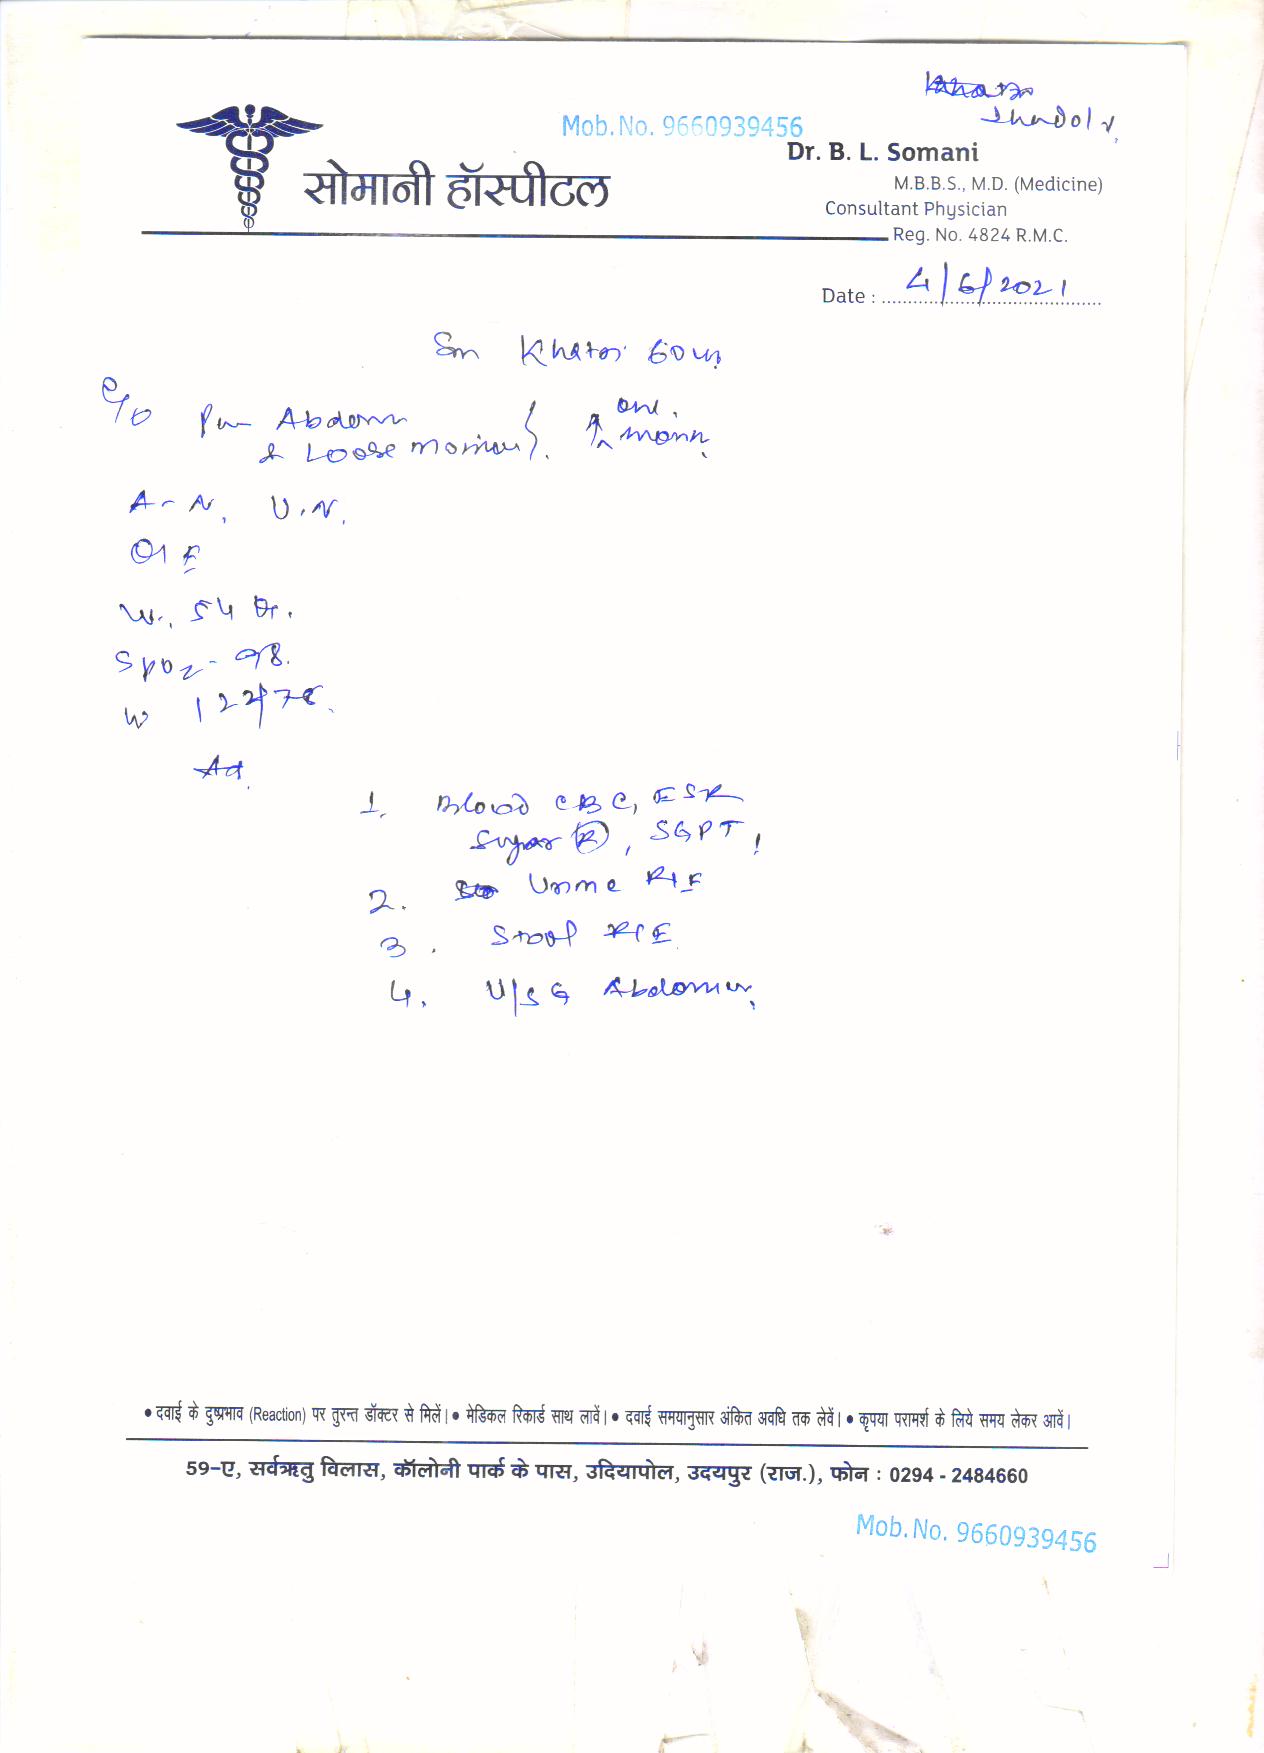 Jhadol
Mob.No. 9660939456
Dr. B. L. Somani
सोमानी हॉस्पीटल
M.B.B.S., M.D. (Medicine)
Consultant Physician
Reg. No. 4824 R.M.C.
Date : 4/6/2021
Khatri 60
C/O Abdomen one
& Loose motion month
A-N, U.N.
O/E
Wt. 54
SpO2 - 98.
122/78.
Ad
1. Blood CBC, ESR
Sugar (R), SGPT,
2. Urine R/E
3. Stool R/E
4. U/SG Abdomen
• दवाई के दुष्प्रभाव (Reaction) पर तुरन्त डॉक्टर से मिलें। • मेडिकल रिकार्ड साथ लावें। • दवाई समयानुसार अंकित अवधि तक लेवें। • कृपया परामर्श के लिये समय लेकर आवें।
59-ए, सर्वऋतु विलास, कॉलोनी पार्क के पास, उदियापोल, उदयपुर (राज.), फोन : 0294 - 2484660
Mob.No. 9660939456